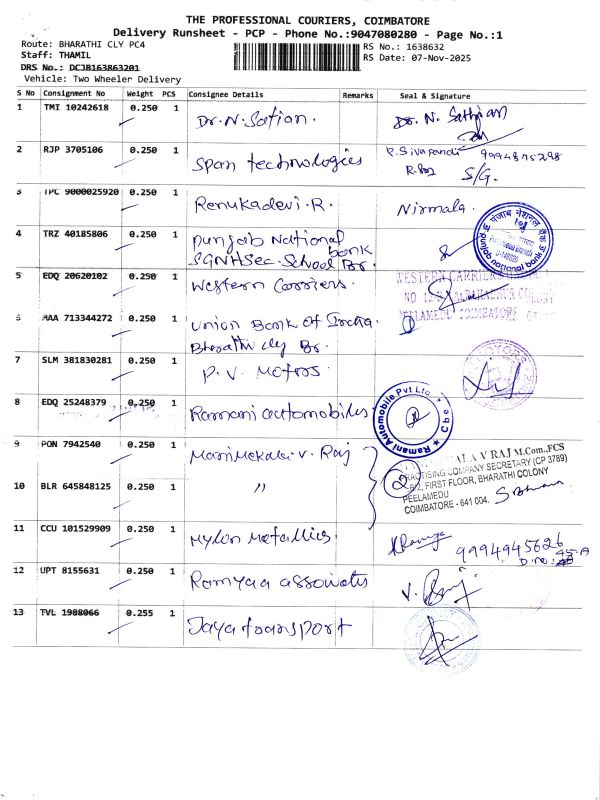 THE PROFESSIONAL COURIERS, COIMBATORE
Delivery Runsheet - PCP - Phone No.:9047080280 - Page No.:1
Route: BHARATHI CLY PC4
RS No.: 1638632
Staff: THAMIL
RS Date: 07-Nov-2025
DRS No.: DCJB163863201
Vehicle: Two Wheeler Delivery
S No Consignment No Weight PCS Consignee Details Remarks Seal & Signature
1 TMI 10242618 0.250 1 Dr. N. Satian. Dr. N. Sathian
2 RJP 3705106 0.250 1 Span technologies 9994875298
S/G.
3 TPC 9000025920 0.250 1 Renukadevi. R. Nirmala.
4 TRZ 40185806 0.250 1 Punjab National bank
SGNHSec. School Br.
पंजाब नैशनल बैंक
punjab national bank
5 EDQ 20620102 0.250 1 Western Carriers. WESTERN CARRIERS
PEELAMEDU COIMBATORE
6 MAA 713344272 0.250 1 Union Bank of India.
Bharathi cly Br.
7 SLM 381830281 0.250 1 P. V. Motors.
8 EDQ 25248379 0.250 1 Ramani automobiles
Ramani Automobile Pvt Ltd. ★ Cbe ★
9 PON 7942540 0.250 1 Manimekalai. V. Raj
ALA V RAJ M.Com.,FCS
PRACTISING COMPANY SECRETARY (CP 3789)
FIRST FLOOR, BHARATHI COLONY
PEELAMEDU
COIMBATORE - 641 004.
10 BLR 645848125 0.250 1 "
11 CCU 101529909 0.250 1 Mylon Metallics. 9994945626
D.no:
12 UPT 8155631 0.250 1 Romyaa associates
13 TVL 1988066 0.255 1 Jaya transport